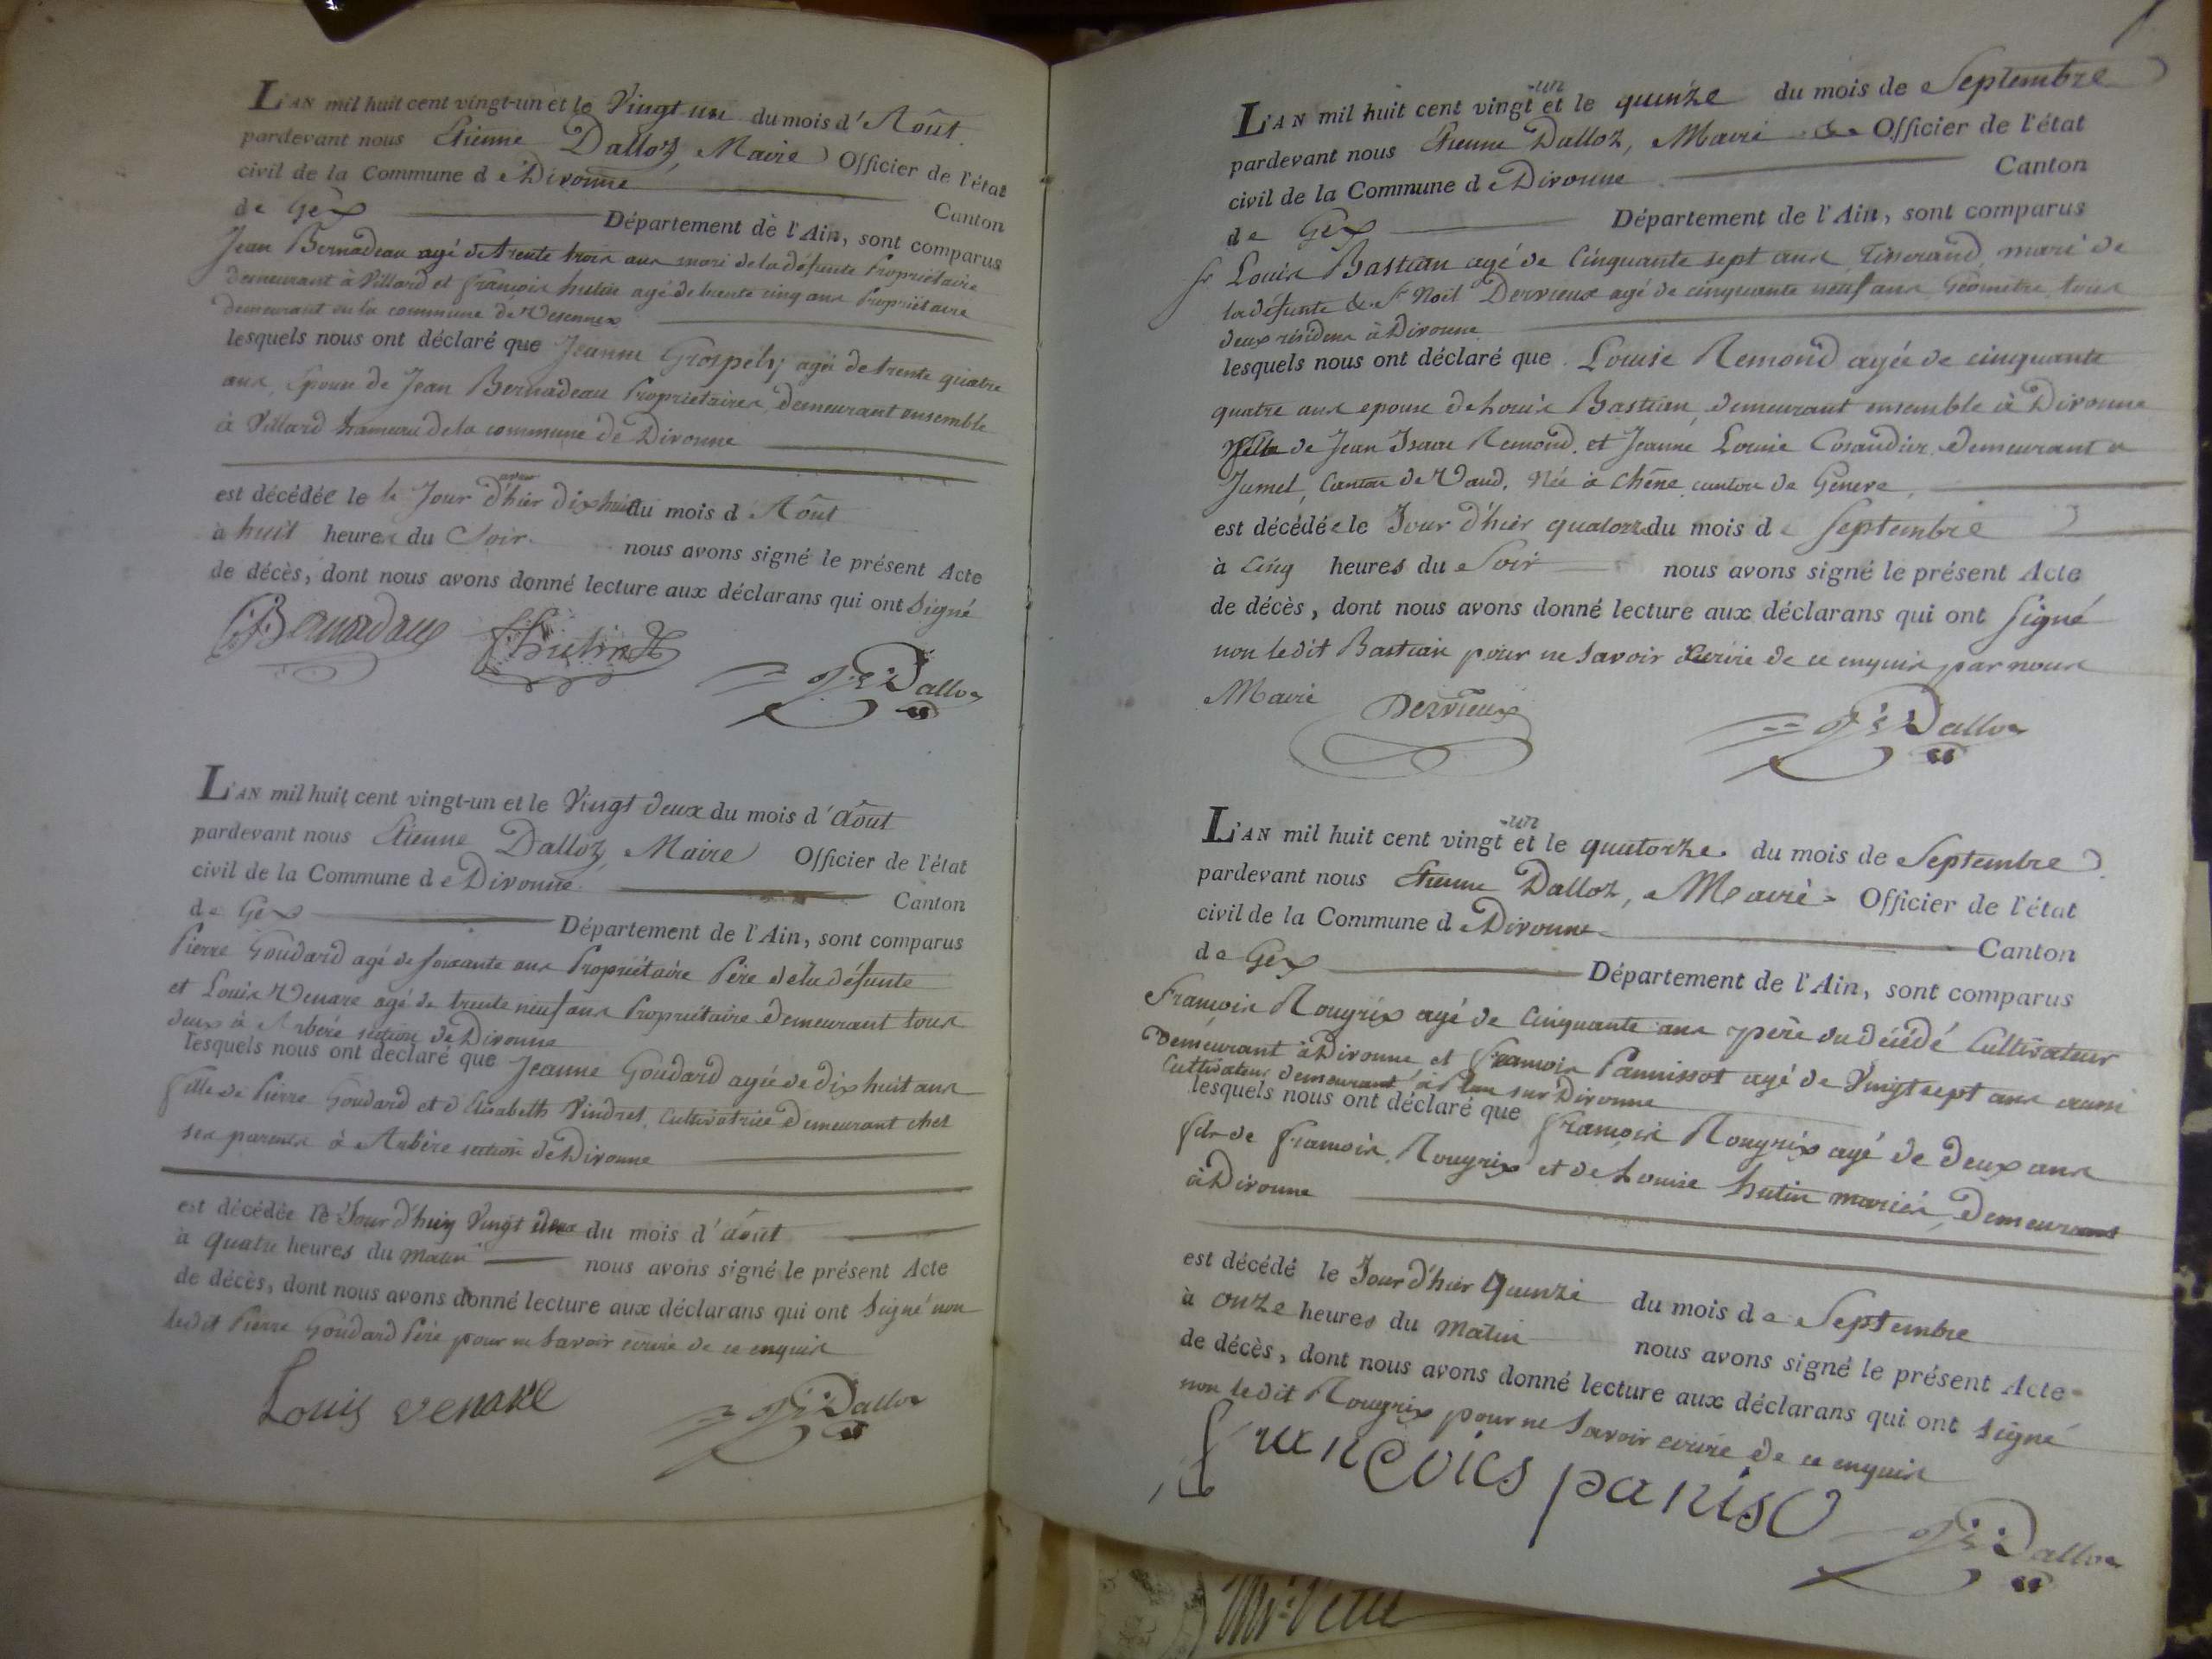 L'AN mil huit cent vingt-un et le Vingt un du mois d'Août
pardevant nous Etienne Dalloz, Maire Officier de l'état
civil de la Commune de Divonne Canton
de Gex Département de l'Ain, sont comparus
Jean Bernadeau agé de trente trois ans mari de la défunte Propriétaire
demeurant à Villard et François hutin agé de trente cinq ans Propriétaire
demeurant en la commune de Vesennex
lesquels nous ont déclaré que Jeanne Grospely agée de trente quatre
ans, Epouse de Jean Bernadeau Propriétaires, demeurant ensemble
à Villard hameau de la commune de Divonne
est décédée le le Jour d'hier dix huit du mois d Août
à huit heures du Soir nous avons signé le présent Acte
de décès, dont nous avons donné lecture aux déclarans qui ont signé
Bernadaux
Dalloz
L'AN mil huit cent vingt-un et le Vingt deux du mois d'août
pardevant nous Etienne Dalloz, Maire Officier de l'état
civil de la Commune de Divonne Canton
de Gex Département de l'Ain, sont comparus
Pierre Goudard agé de soixante ans Propriétaire Père de la défunte
et Louis Venare agé de trente neuf ans Propriétaire demeurant tous
deux à Arbère section de Divonne
lesquels nous ont déclaré que Jeanne Goudard agée de dix huit ans
fille de Pierre Goudard et d'Elisabeth Vindret, Cultivatrice demeurant chez
ses parents à Arbère section de Divonne
est décédée le Jour d'huy Vingt deux du mois d'août
à quatre heures du matin nous avons signé le présent Acte
de décès, dont nous avons donné lecture aux déclarans qui ont signé non
ledit Pierre Goudard Père pour ne savoir écrire de ce enquis
Louis venare
Dalloz
L'AN mil huit cent vingt-un et le quinze du mois de Septembre
pardevant nous Etienne Dalloz, Maire Officier de l'état
civil de la Commune de Divonne Canton
de Gex Département de l'Ain, sont comparus
sr Louis Bastian agé de Cinquante sept ans Tisserand, mari de
la défunte & sr Noël Dervieux agé de cinquante neuf ans Géomètre tous
deux résidens à Divonne
lesquels nous ont déclaré que Louise Remond agée de cinquante
quatre ans epouse de Louis Bastian demeurant ensemble à Divonne
fille de Jean Isaac Remond, et Jeanne Louise Cosandier demeurant a
Jumel, Canton de Vaud, Née à Chêne canton de Geneve,
est décédée le Jour d'hier quatorze du mois de Septembre
à Cinq heures du Soir nous avons signé le présent Acte
de décès, dont nous avons donné lecture aux déclarans qui ont signé
non ledit Bastian pour ne savoir écrire de ce enquis par nous
Maire Dervieux
Dalloz
L'AN mil huit cent vingt-un et le quatorze du mois de Septembre
pardevant nous Etienne Dalloz, Maire Officier de l'état
civil de la Commune de Divonne Canton
de Gex Département de l'Ain, sont comparus
François Rougrix agé de Cinquante ans père du décédé Cultivateur
demeurant à Divonne, et François Pannissot agé de Vingt sept ans aussi
Cultivateur demeurant à Plan sur Divonne
lesquels nous ont déclaré que François Rougrix agé de deux ans
fils de François Rougrix et de Louise hutin mariés, demeurant
à Divonne
est décédé le Jour d'hier quinze du mois de Septembre
à onze heures du matin nous avons signé le présent Acte
de décès, dont nous avons donné lecture aux déclarans qui ont signé
non ledit Rougrix pour ne savoir ecrire de ce enquis
francoics paniso
Dalloz